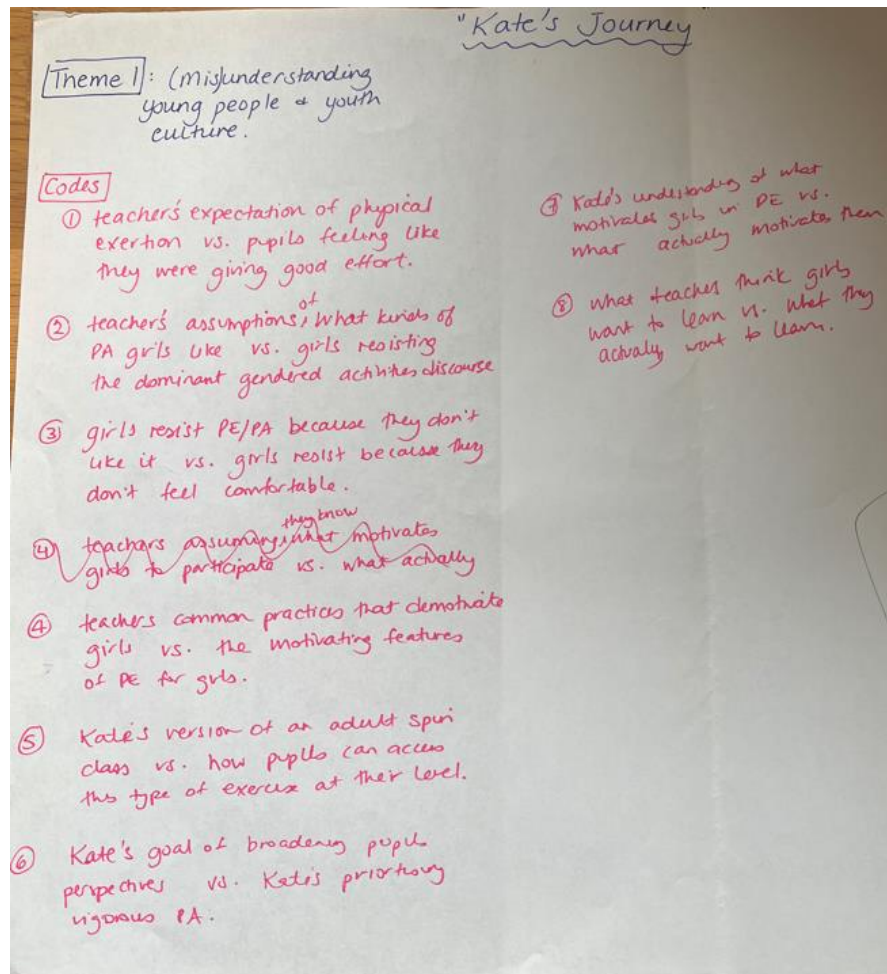 "Kate's Journey"
Theme 1: (mis)understanding
young people & youth
culture.
Codes
① teachers' expectation of physical
exertion vs. pupils feeling like
they were giving good effort.
② teachers' assumptions of what kinds of
PA girls like vs. girls resisting
the dominant gendered activities discourse
③ girls resist PE/PA because they don't
like it vs. girls resist because they
don't feel comfortable.
④ teachers assuming they know what motivates
girls to participate vs. what actually
④ teachers common practices that demotivate
girls vs. the motivating features
of PE for girls.
⑤ Kate's version of an adult spin
class vs. how pupils can access
this type of exercise at their level.
⑥ Kate's goal of broadening pupils
perspectives vs. Kate's prioritising
vigorous PA.
⑦ Kate's understanding of what
motivates girls in PE vs.
what actually motivates them
⑧ what teachers think girls
want to learn vs. what they
actually want to learn.